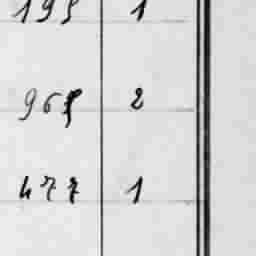 195 1
965 2
477 1